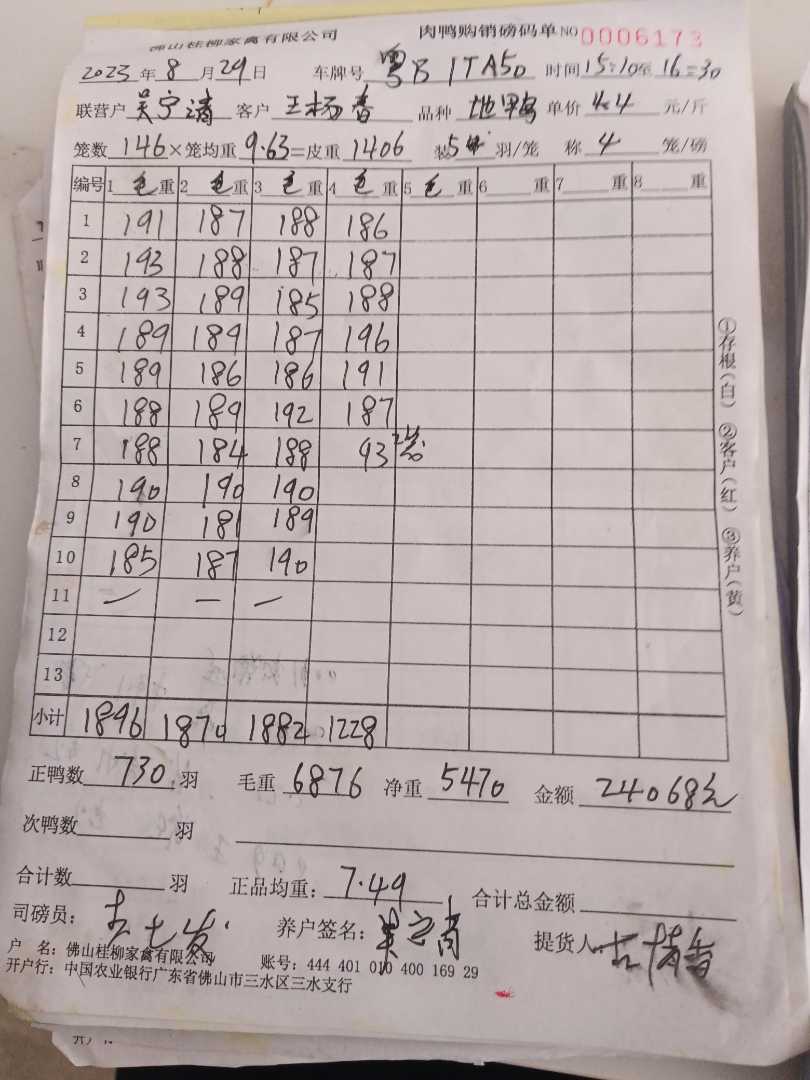 佛山桂柳家禽有限公司 肉鸭购销磅码单 NO 0006173
2023年8月29日 车牌号 粤B 1TA50 时间15:10至16:30
联营户 吴宁清 客户 王杨香 品种 地鸭 单价 4.4 元/斤
笼数 146×笼均重 9.63=皮重 1406 装 5 羽/笼 称 4 笼/磅
编号 1 毛重 2 毛重 3 毛重 4 毛重 5 毛重 6 重 7 重 8 重
1 191 187 188 186
2 193 188 187 187
3 193 189 185 188
4 189 189 187 196
5 189 186 186 191
6 188 189 192 187
7 188 184 188 93 2笼
8 190 190 190
9 190 181 189
10 185 187 190
11 — — —
12
13
小计 1896 1870 1882 1228
正鸭数 730 羽 毛重 6876 净重 5470 金额 24068元
次鸭数 羽
合计数 羽 正品均重: 7.49 合计总金额
司磅员: 养户签名: 提货人:
户 名: 佛山桂柳家禽有限公司 账号: 444 401 010 400 169 29
开户行: 中国农业银行广东省佛山市三水区三水支行
①存根(白) ②客户(红) ③养户(黄)